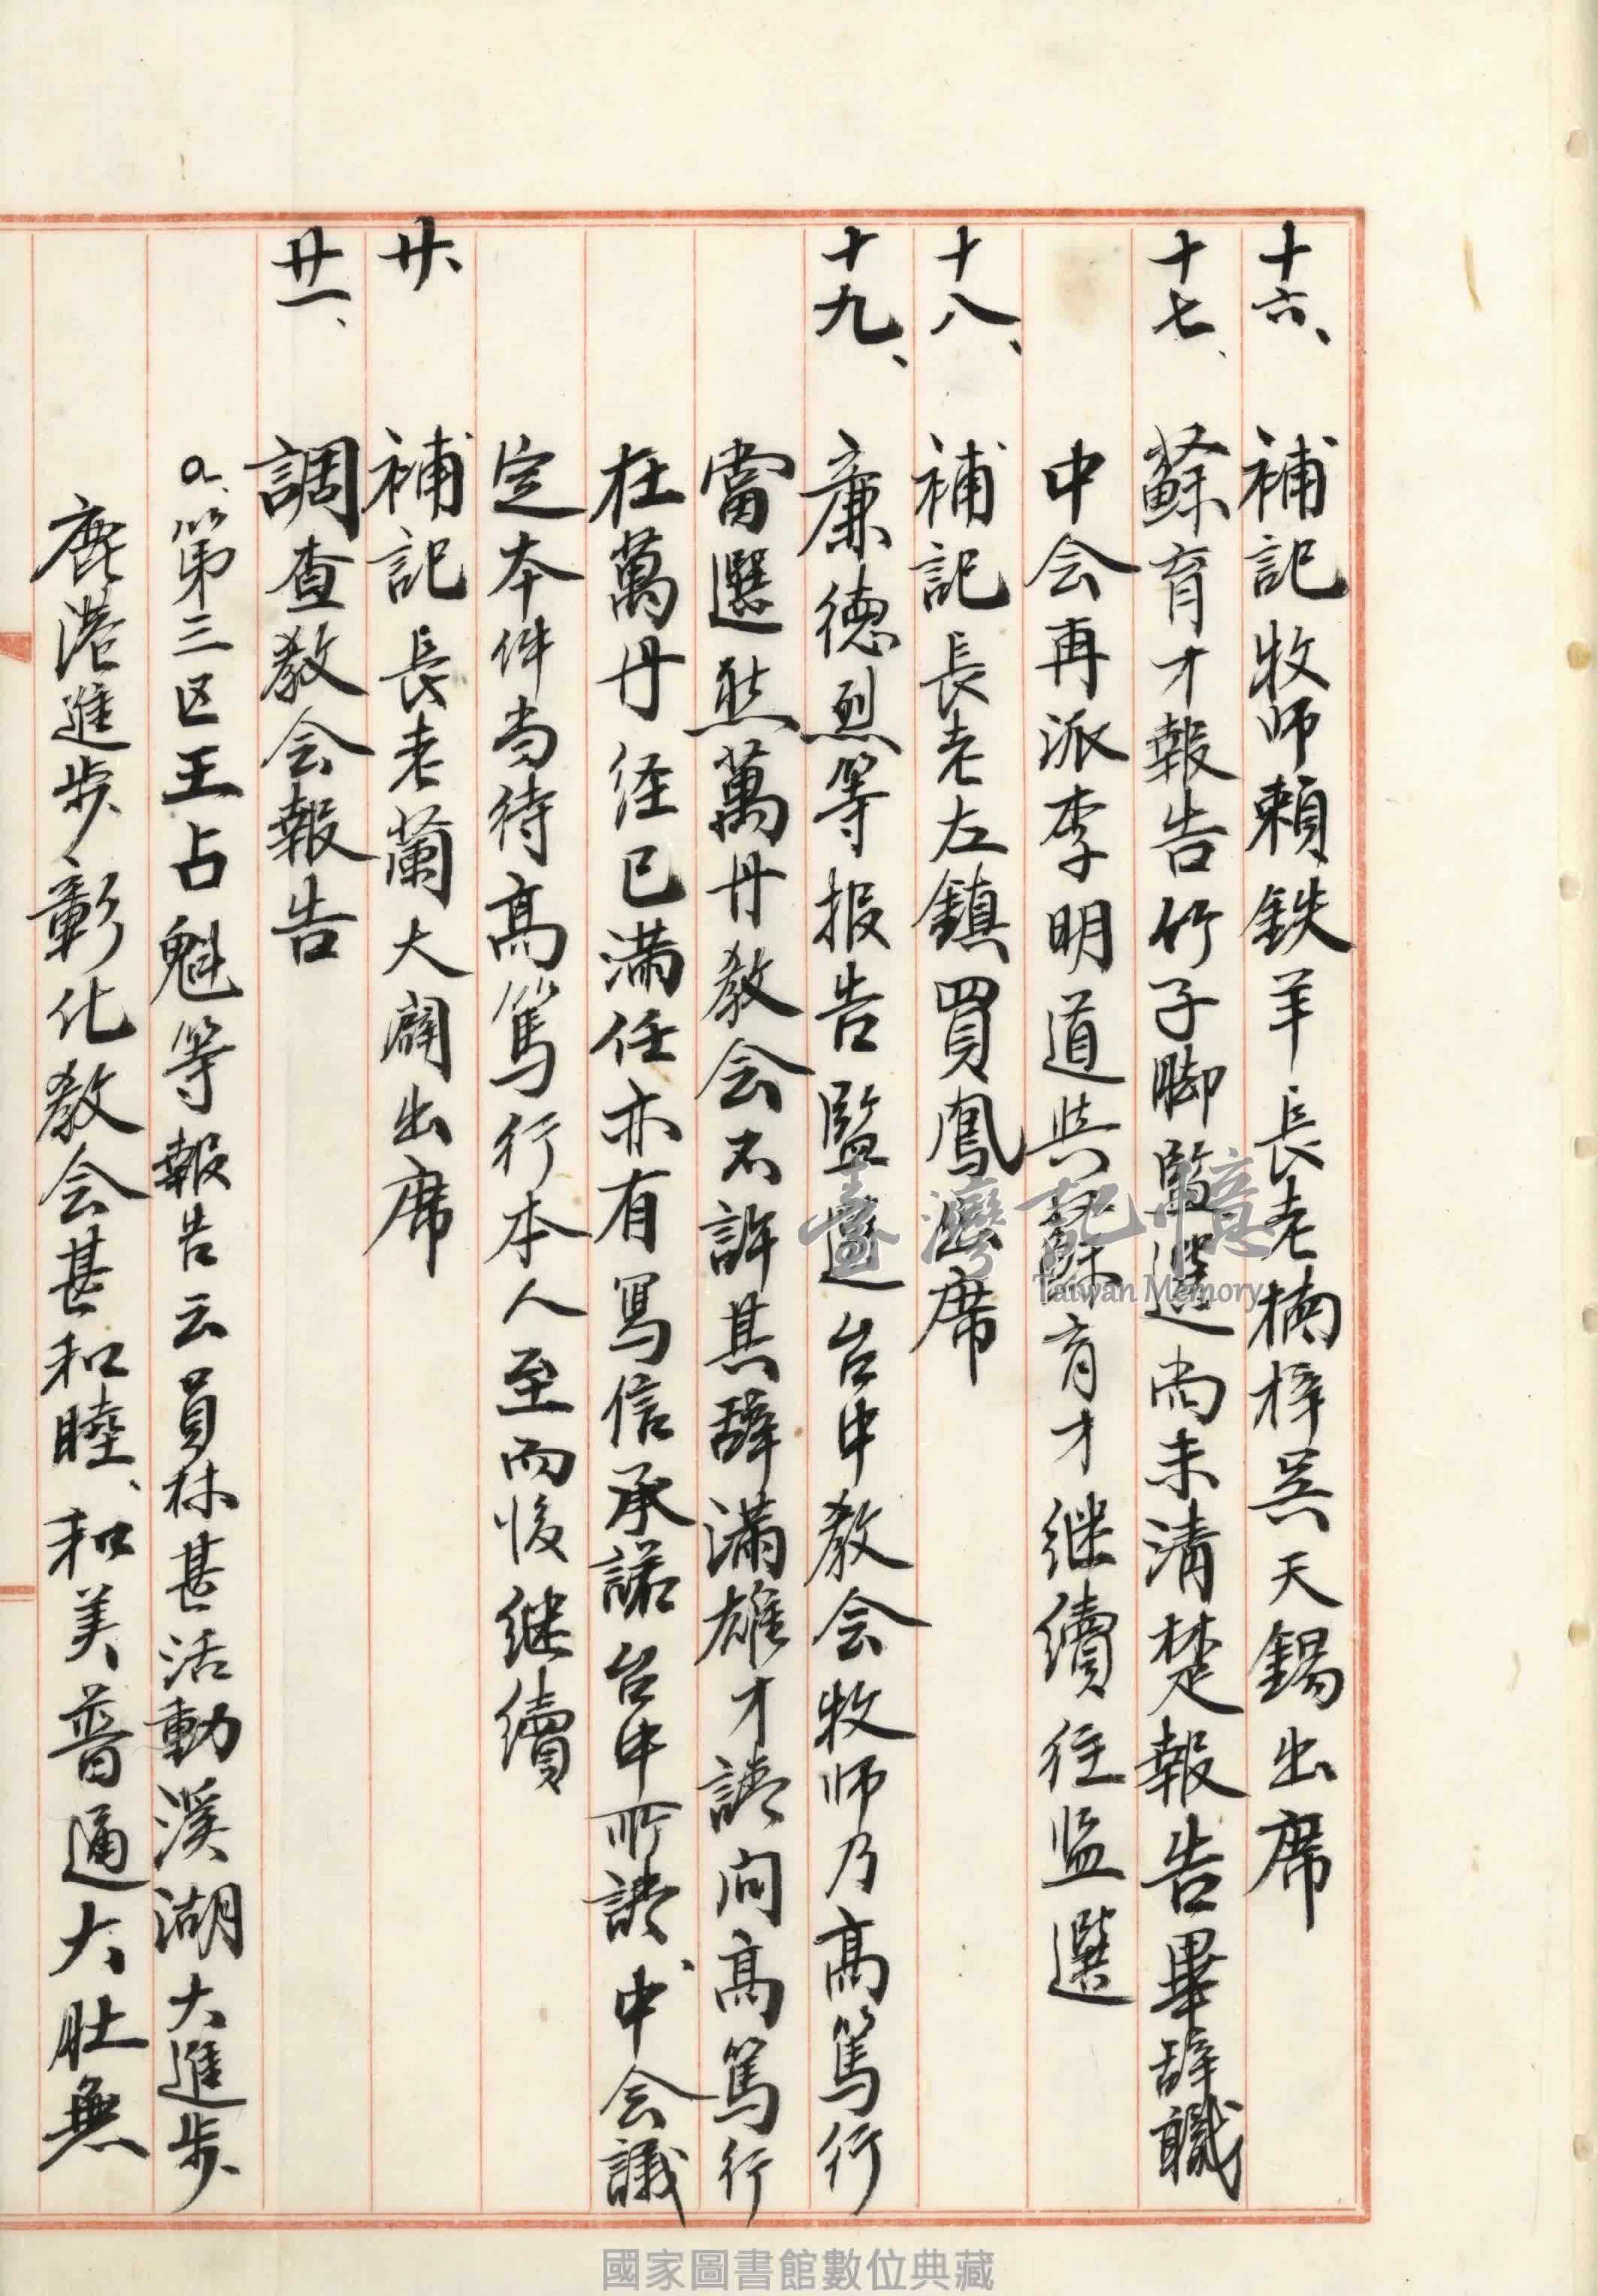 十六、補記牧師賴鉄羊長老楠梓吳天錫出席
十七、蘇育才報告竹子脚監選尚未清楚報告畢辞職
中会再派李明道與蘇育才継續往监選
十八、補記長老左鎮買鳳出席
十九、廉德烈等报告監選台中教会牧师乃高篤行
當選然萬丹教会不許其辞滿雄才請向高篤行
在萬丹経已满任亦有寫信承諾台中所請、中会議
定本件尚待高篤行本人至而後继續
廿、補記長老蘭大闢出席
廿一、調查教会報告
a、第三区王占魁等報告云員林甚活動溪湖大進步
鹿港進步彰化教会甚和睦、和美普通大肚無
臺灣記憶
Taiwan Memory
國家圖書館數位典藏